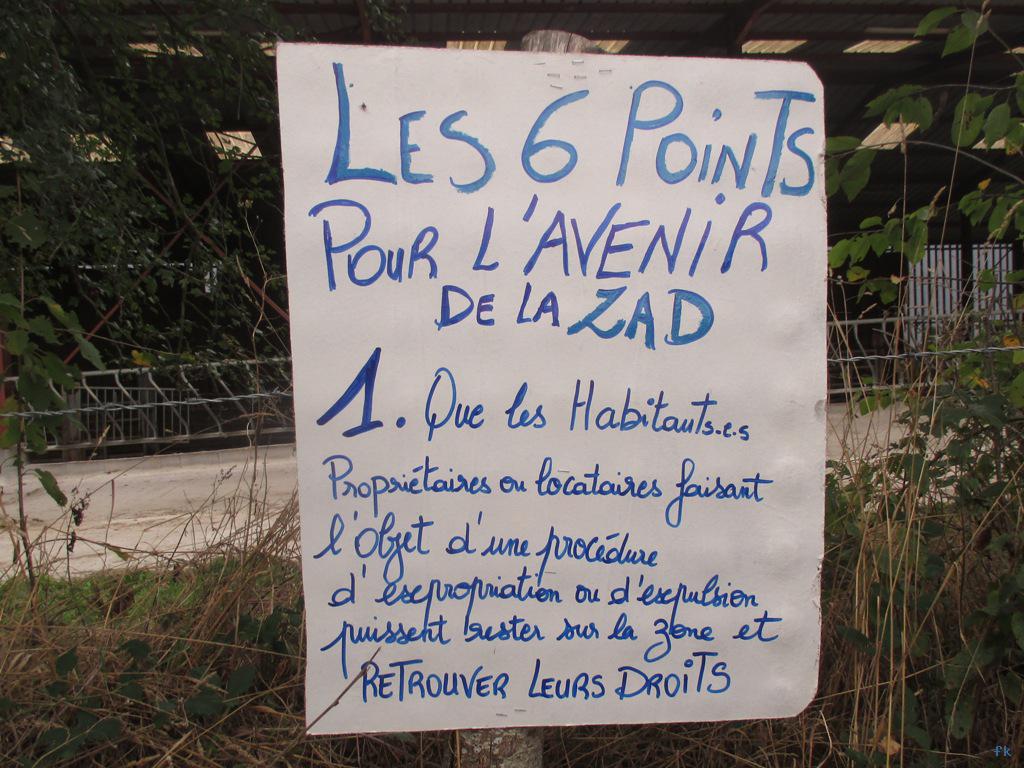 LES 6 POINTS
POUR L'AVENIR
DE LA ZAD
1. Que les Habitants.e.s
Propriétaires ou locataires faisant
l'objet d'une procédure
d'expropriation ou d'expulsion
puissent rester sur la zone et
RETROUVER LEURS DROITS
fk